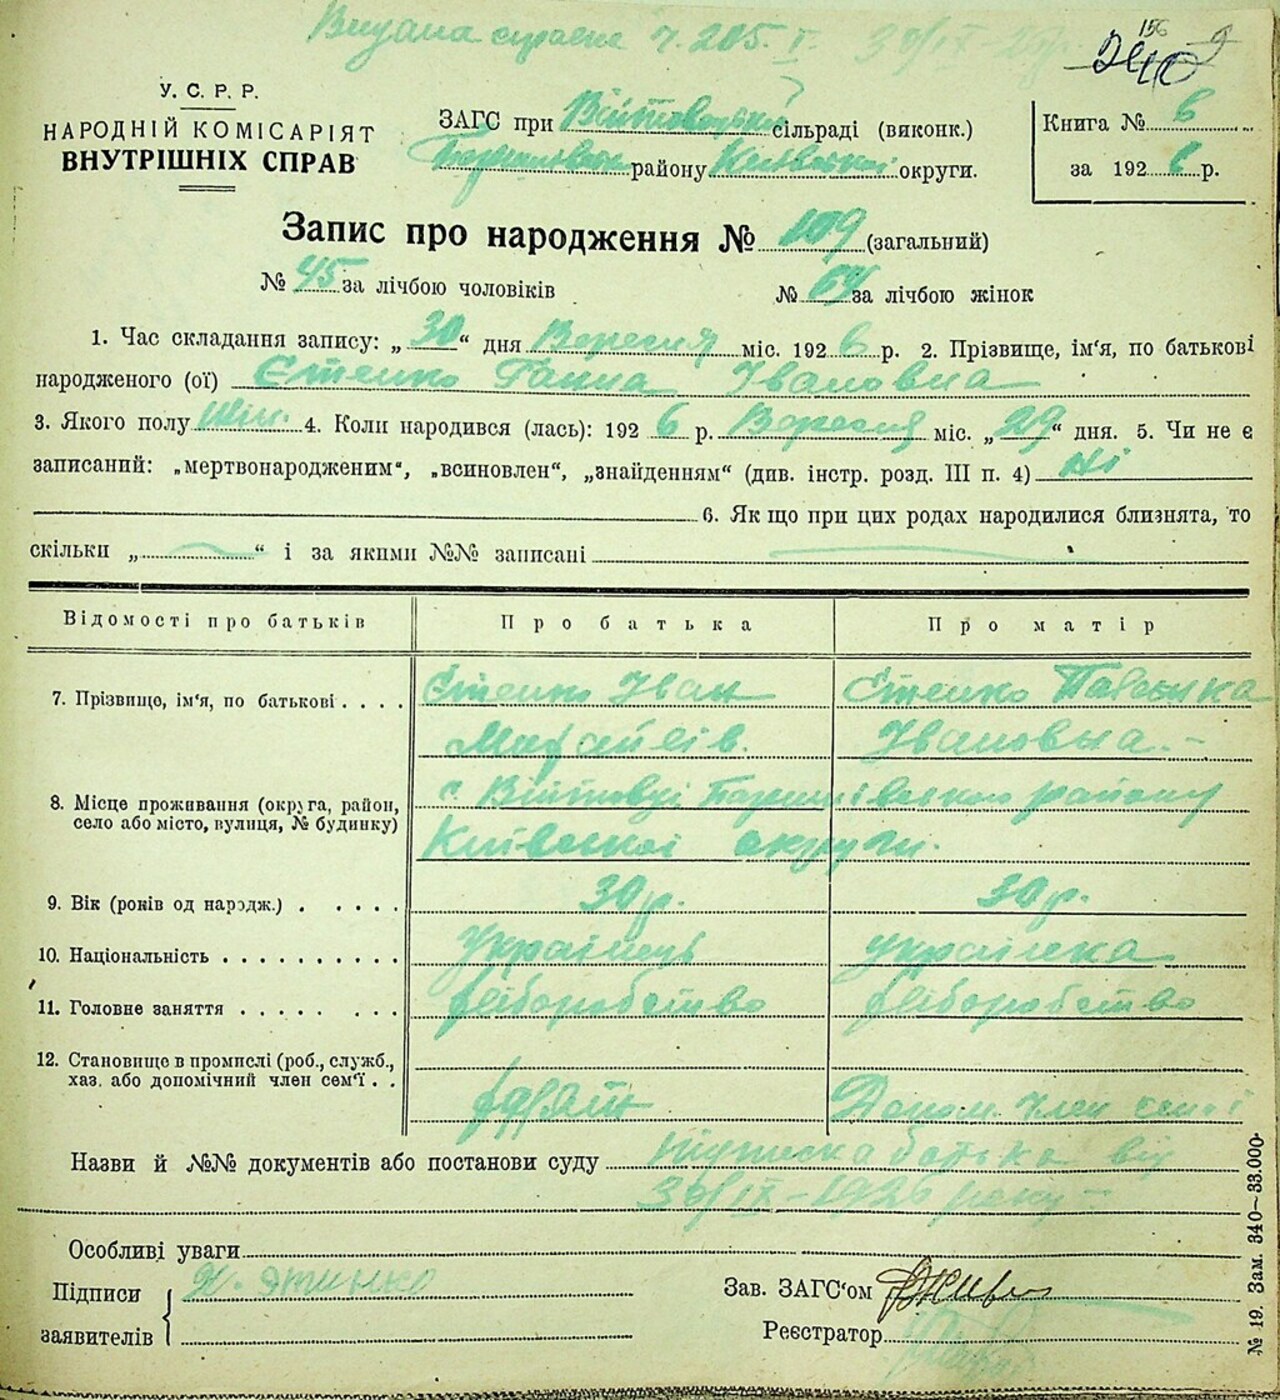 Видана справка Ч. 205. І. 30/ІХ-26р.
156
240
У. С. Р. Р.
НАРОДНІЙ КОМІСАРІЯТ
ВНУТРІШНІХ СПРАВ
ЗАГС при Війтовецькій сільраді (виконк.)
району Київської округи.
Книга № 6
за 1926 р.
Запис про народження № 109 (загальний)
№ 45 за лічбою чоловіків
№ 64 за лічбою жінок
1. Час складання запису: „30“ дня Вересня міс. 1926 р. 2. Прізвище, ім'я, по батькові
народженого (ої) Єтенко Ганна Івановна
3. Якого полу Жін. 4. Коли народився (лась): 1926 р. Вересня міс. „29“ дня. 5. Чи не є
записаний: „мертвонародженим“, „всиновлен“, „знайденням“ (див. інстр. розд. III п. 4) Ні
6. Як що при цих родах народилися близнята, то
скільки „ “ і за якими №№ записані
Відомості про батьків Про батька Про матір
7. Прізвище, ім'я, по батькові . . . . Єтенко Іван Єтенко Павлінка
Михайлів. Івановна. -
8. Місце проживання (округа, район, с. Війтовці району
село або місто, вулиця, № будинку) Київської округи.
9. Вік (років од народж.) . . . . . 30 р. 30 р.
10. Національність . . . . . . . . . . Українець Українка
11. Головне заняття . . . . . . . . Хліборобство Хліборобство
12. Становище в промислі (роб., служб.,
хаз. або допомічний член сем'ї . . Хазяїн Допом. член семї
Назви й №№ документів або постанови суду підписка батька від
30/ІХ-1926 року -
Особливі уваги
Підписи
заявителів
Зав. ЗАГС'ом
Реєстратор
№ 19. Зам. 340—33.000.